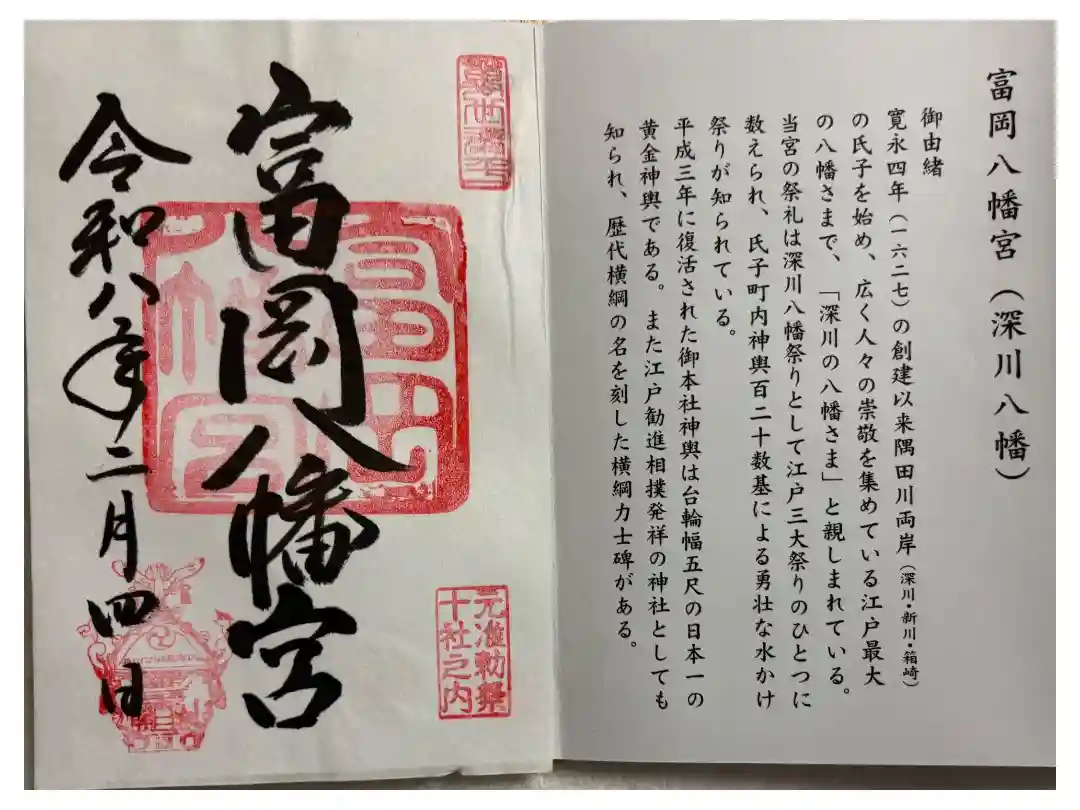 富岡八幡宮（深川八幡）
御由緒
寛永四年（一六二七）の創建以来隅田川両岸（深川・新川・箱崎）
の氏子を始め、広く人々の崇敬を集めている江戸最大
の八幡さまで、「深川の八幡さま」と親しまれている。
当宮の祭礼は深川八幡祭りとして江戸三大祭りのひとつに
数えられ、氏子町内神輿百二十数基による勇壮な水かけ
祭りが知られている。
平成三年に復活された御本社神輿は台輪幅五尺の日本一の
黄金神輿である。また江戸勧進相撲発祥の神社としても
知られ、歴代横綱の名を刻した横綱力士碑がある。
元准勅祭
十社之内
富岡八幡宮
令和八年二月四日